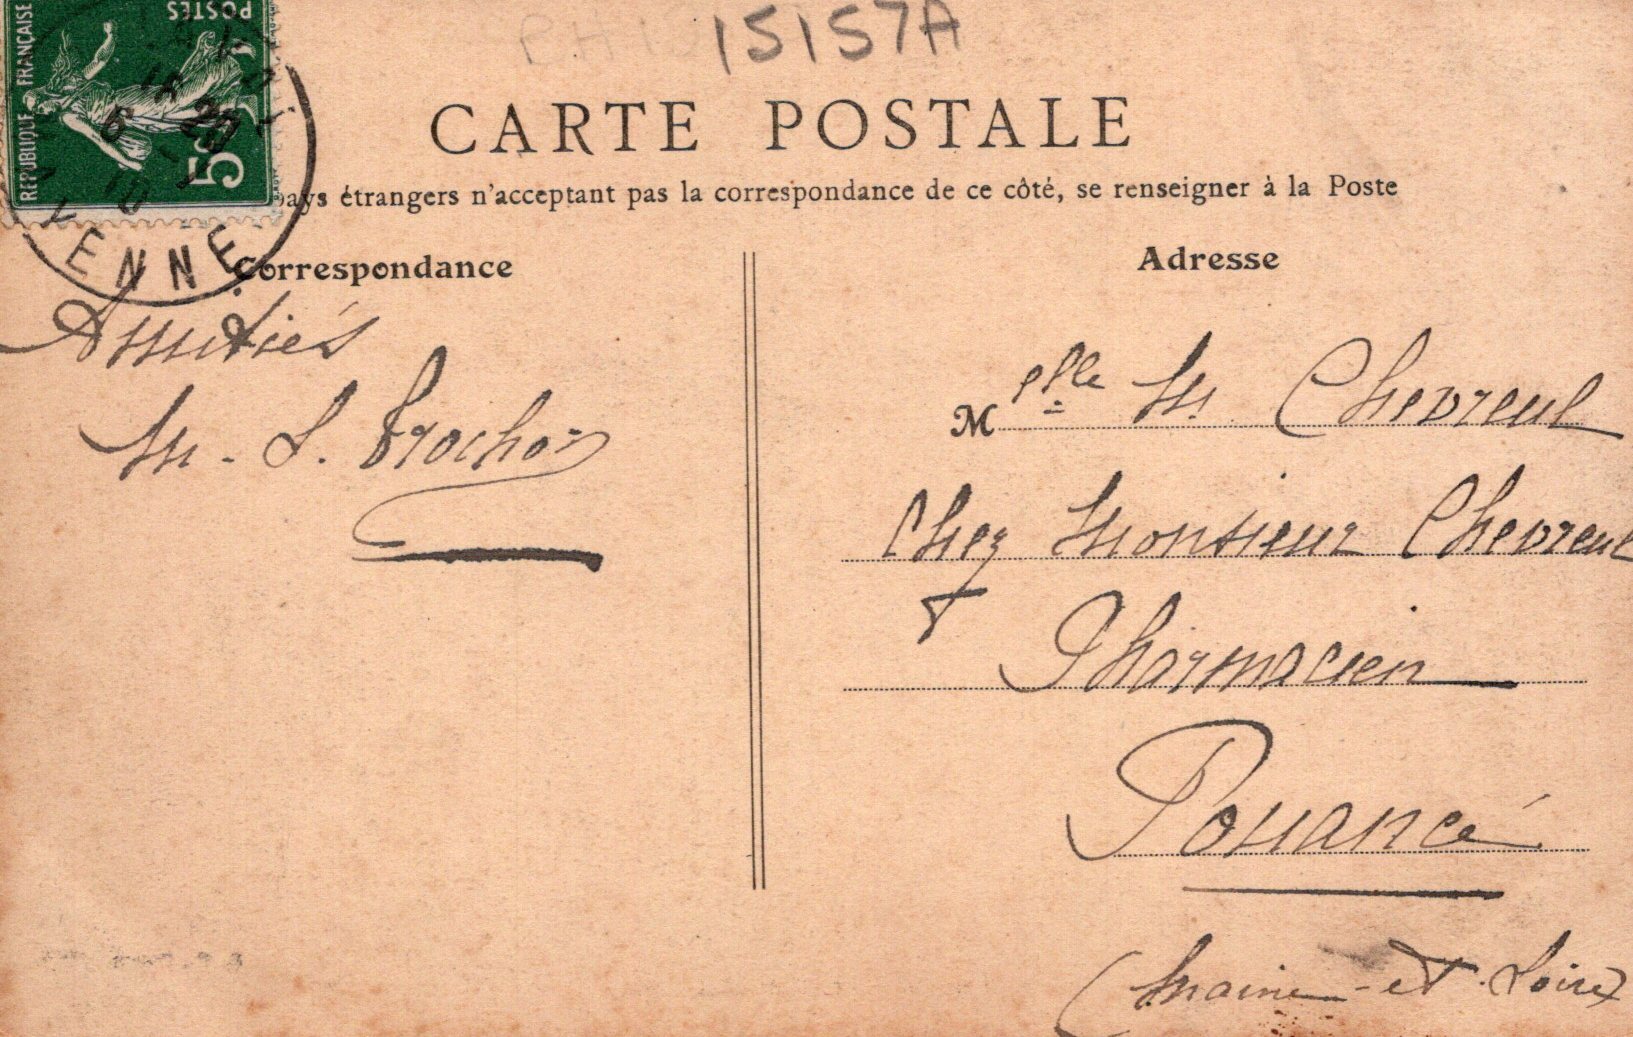 15157A
POSTES
RÉPUBLIQUE FRANÇAISE
5c
16 20
6 - 7
10
YENNE
CARTE POSTALE
pays étrangers n'acceptant pas la correspondance de ce côté, se renseigner à la Poste
Correspondance
Amitiés
M. L. Trochon
Adresse
Melle M Chevreul
Chez Monsieur Chevreul
Pharmacien
Pouancé
(Maine-et-Loire)